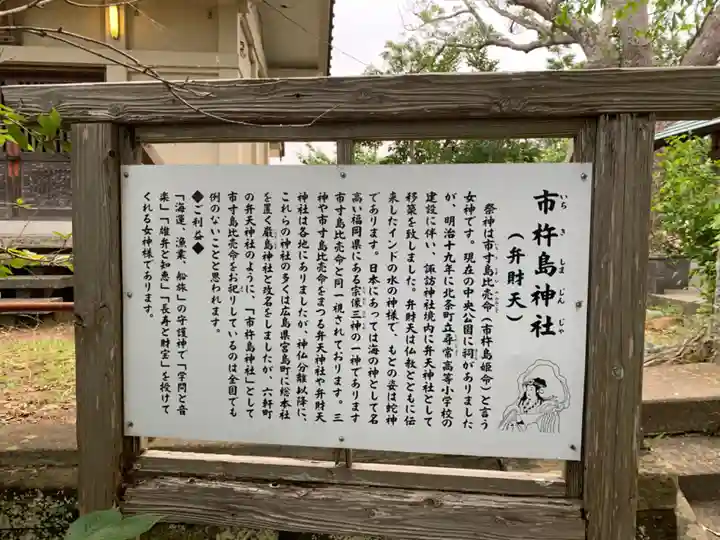 市杵島神社
いちきしまじんじゃ
(弁財天)
祭神は市寸島比売命(市杵島姫命)と言う
女神です。現在の中央公園に祠がありました
が、明治十九年に北条町立尋常高等小学校の
建設に伴い、諏訪神社境内に弁天神社として
移築を致しました。弁財天は仏教とともに伝
来したインドの水の神様で、もとの姿は蛇神
であります。日本にあっては海の神として名
高い福岡県にある宗像三神の一神であります
市寸島比売命と同一視されております。三
神や市寸島比売命をまつる弁天神社や弁財天
神社は各地にありましたが、神仏分離以降に、
これらの神社の多くは広島県宮島町に総本社
を置く厳島神社と改名をしましたが、六軒町
の弁天神社のように、「市杵島神社」として
市寸島比売命をお祀りしているのは全国でも
例のないことと思われます。
◆ご利益◆
「海運、漁業、船旅」の守護神で「学問と音
楽」「雄弁と知恵」「長寿と財宝」を授けて
くれる女神様であります。